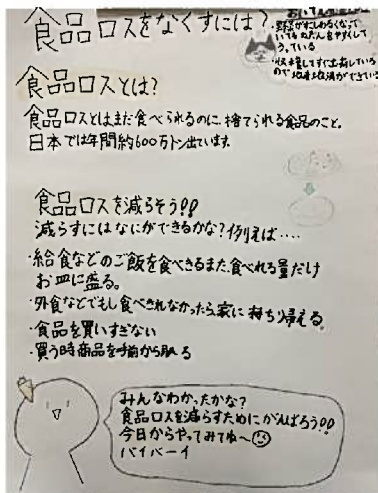 食品ロスをなくすには?
食品ロスとは?
食品ロスとはまだ食べられるのに、捨てられる食品のこと。
日本では年間約600万トン出ています。
食品ロスを減らそう!!
減らすにはなにができるかな?例えば‥‥
・給食などのご飯を食べきるまた、食べれる量だけ
お皿に盛る。
・外食などでもし食べきれなかったら家に持ち帰える。
・食品を買いすぎない
・買う時商品を手前から取る
みんなわかったかな?
食品ロスを減らすためにがんばろう!!
今日からやってみてね〜
バイバーイ